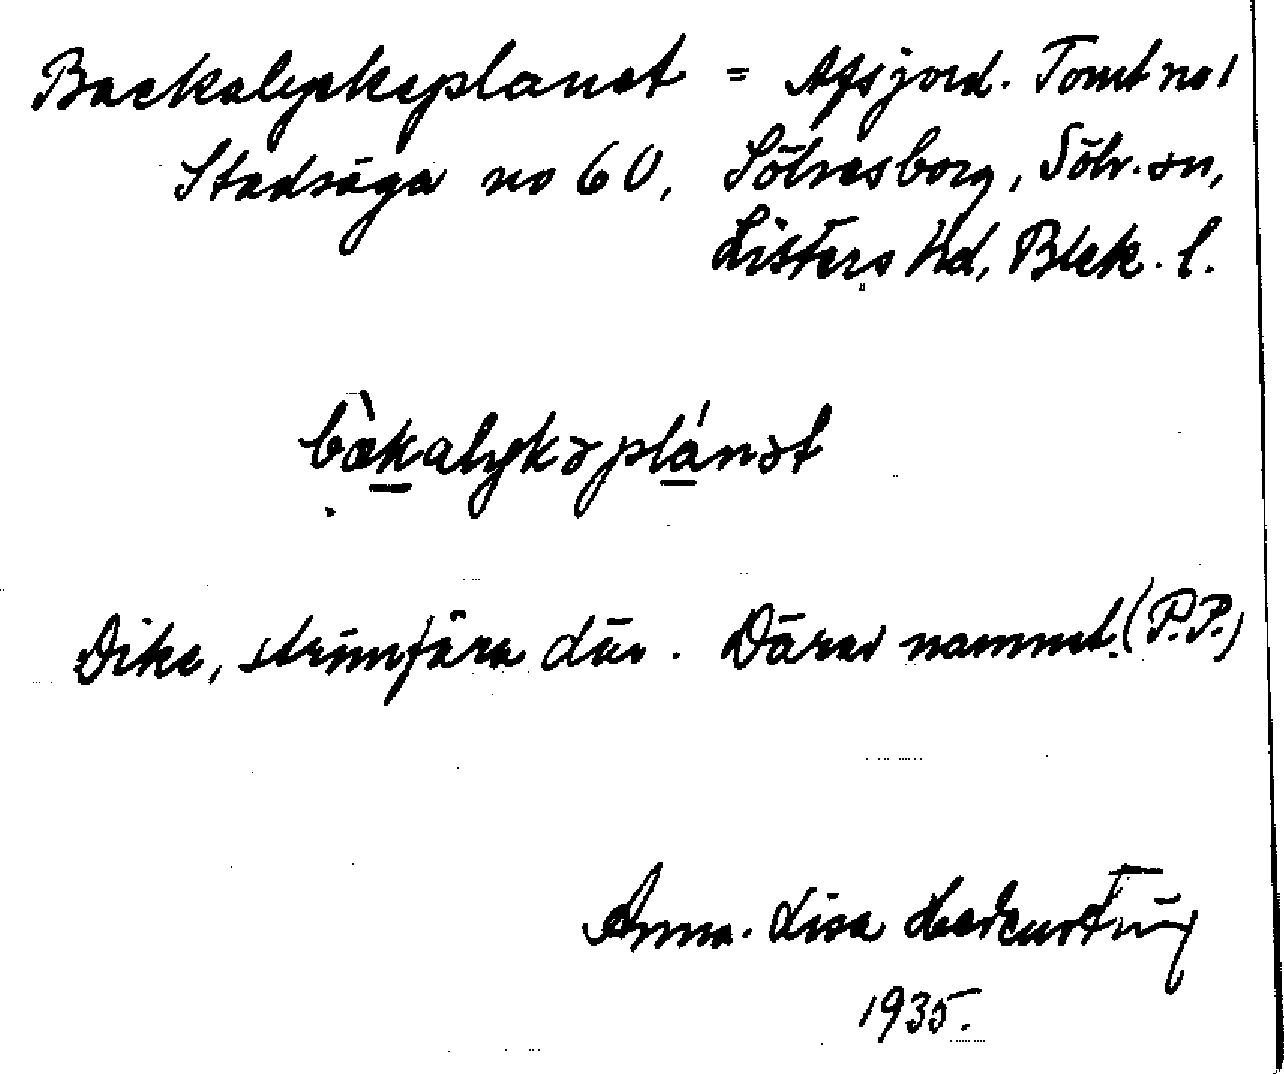 Backalyckeplanet = Afsjord. Tomt no 1
Stadsäga no 60, Sölvesborg, Sölv. sn,
Listers hd, Blek. l.
bàkalykəplánət
Dike, strömfåra där. Därav namnet. (P.P.)
Anna-Lisa
1935.